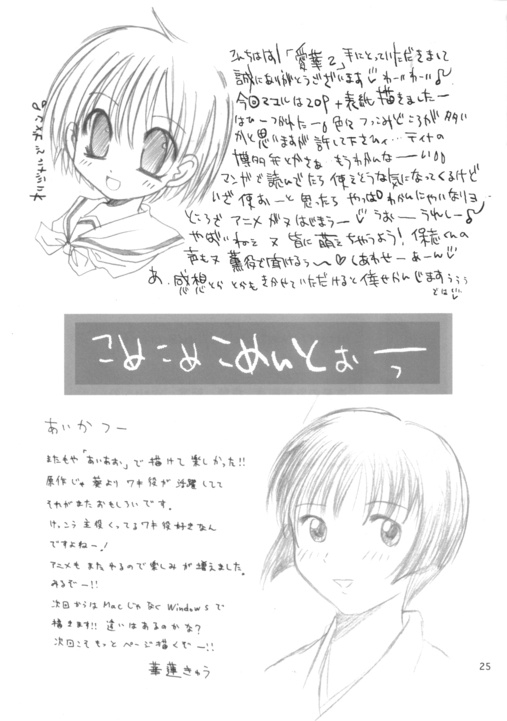 こんちはは!「愛華2」手にとっていただきまして
誠にありがとうございます♡わーいわーい♪
今回マユルは20P+表紙描きましたー
はひーつかれたー色々つっこみどころが多い
かと思いますが許して下さい…ティナの
博多弁とかさぁ もうわかんなーーい!!
マンガで読んでたら使えそうな気になってくるけど
いざ使おーと思ったらやっぱわかんにゃいなりヨ
ところで アニメがヌはじまるーー♡うおーうれしー♪
やばいねっ ヌ 皆に萌えちゃうよう! 保志くんの
声もヌ薫役で聞けるぅ～♡しあわせーあーん♡
あ、感想とかとかもきかせていただけると倖せかんじますぅぅぅ
では♡
こめこめこめんとぉーっ
あいかつー
またもや「あいあお」で描けて楽しかった!!
原作じゃ葵よりワキ役が活躍してて
それがまたおもしろいです。
けっこう主役くってるワキ役好きなん
ですよねー!
アニメもまたやるので楽しみが増えました。
みるぞー!!
次回からはMacじゃなくWindowsで
描きます!! 違いはあるのかな?
次回こそもっとページ描くぞー!!
華蓮きゅう
25